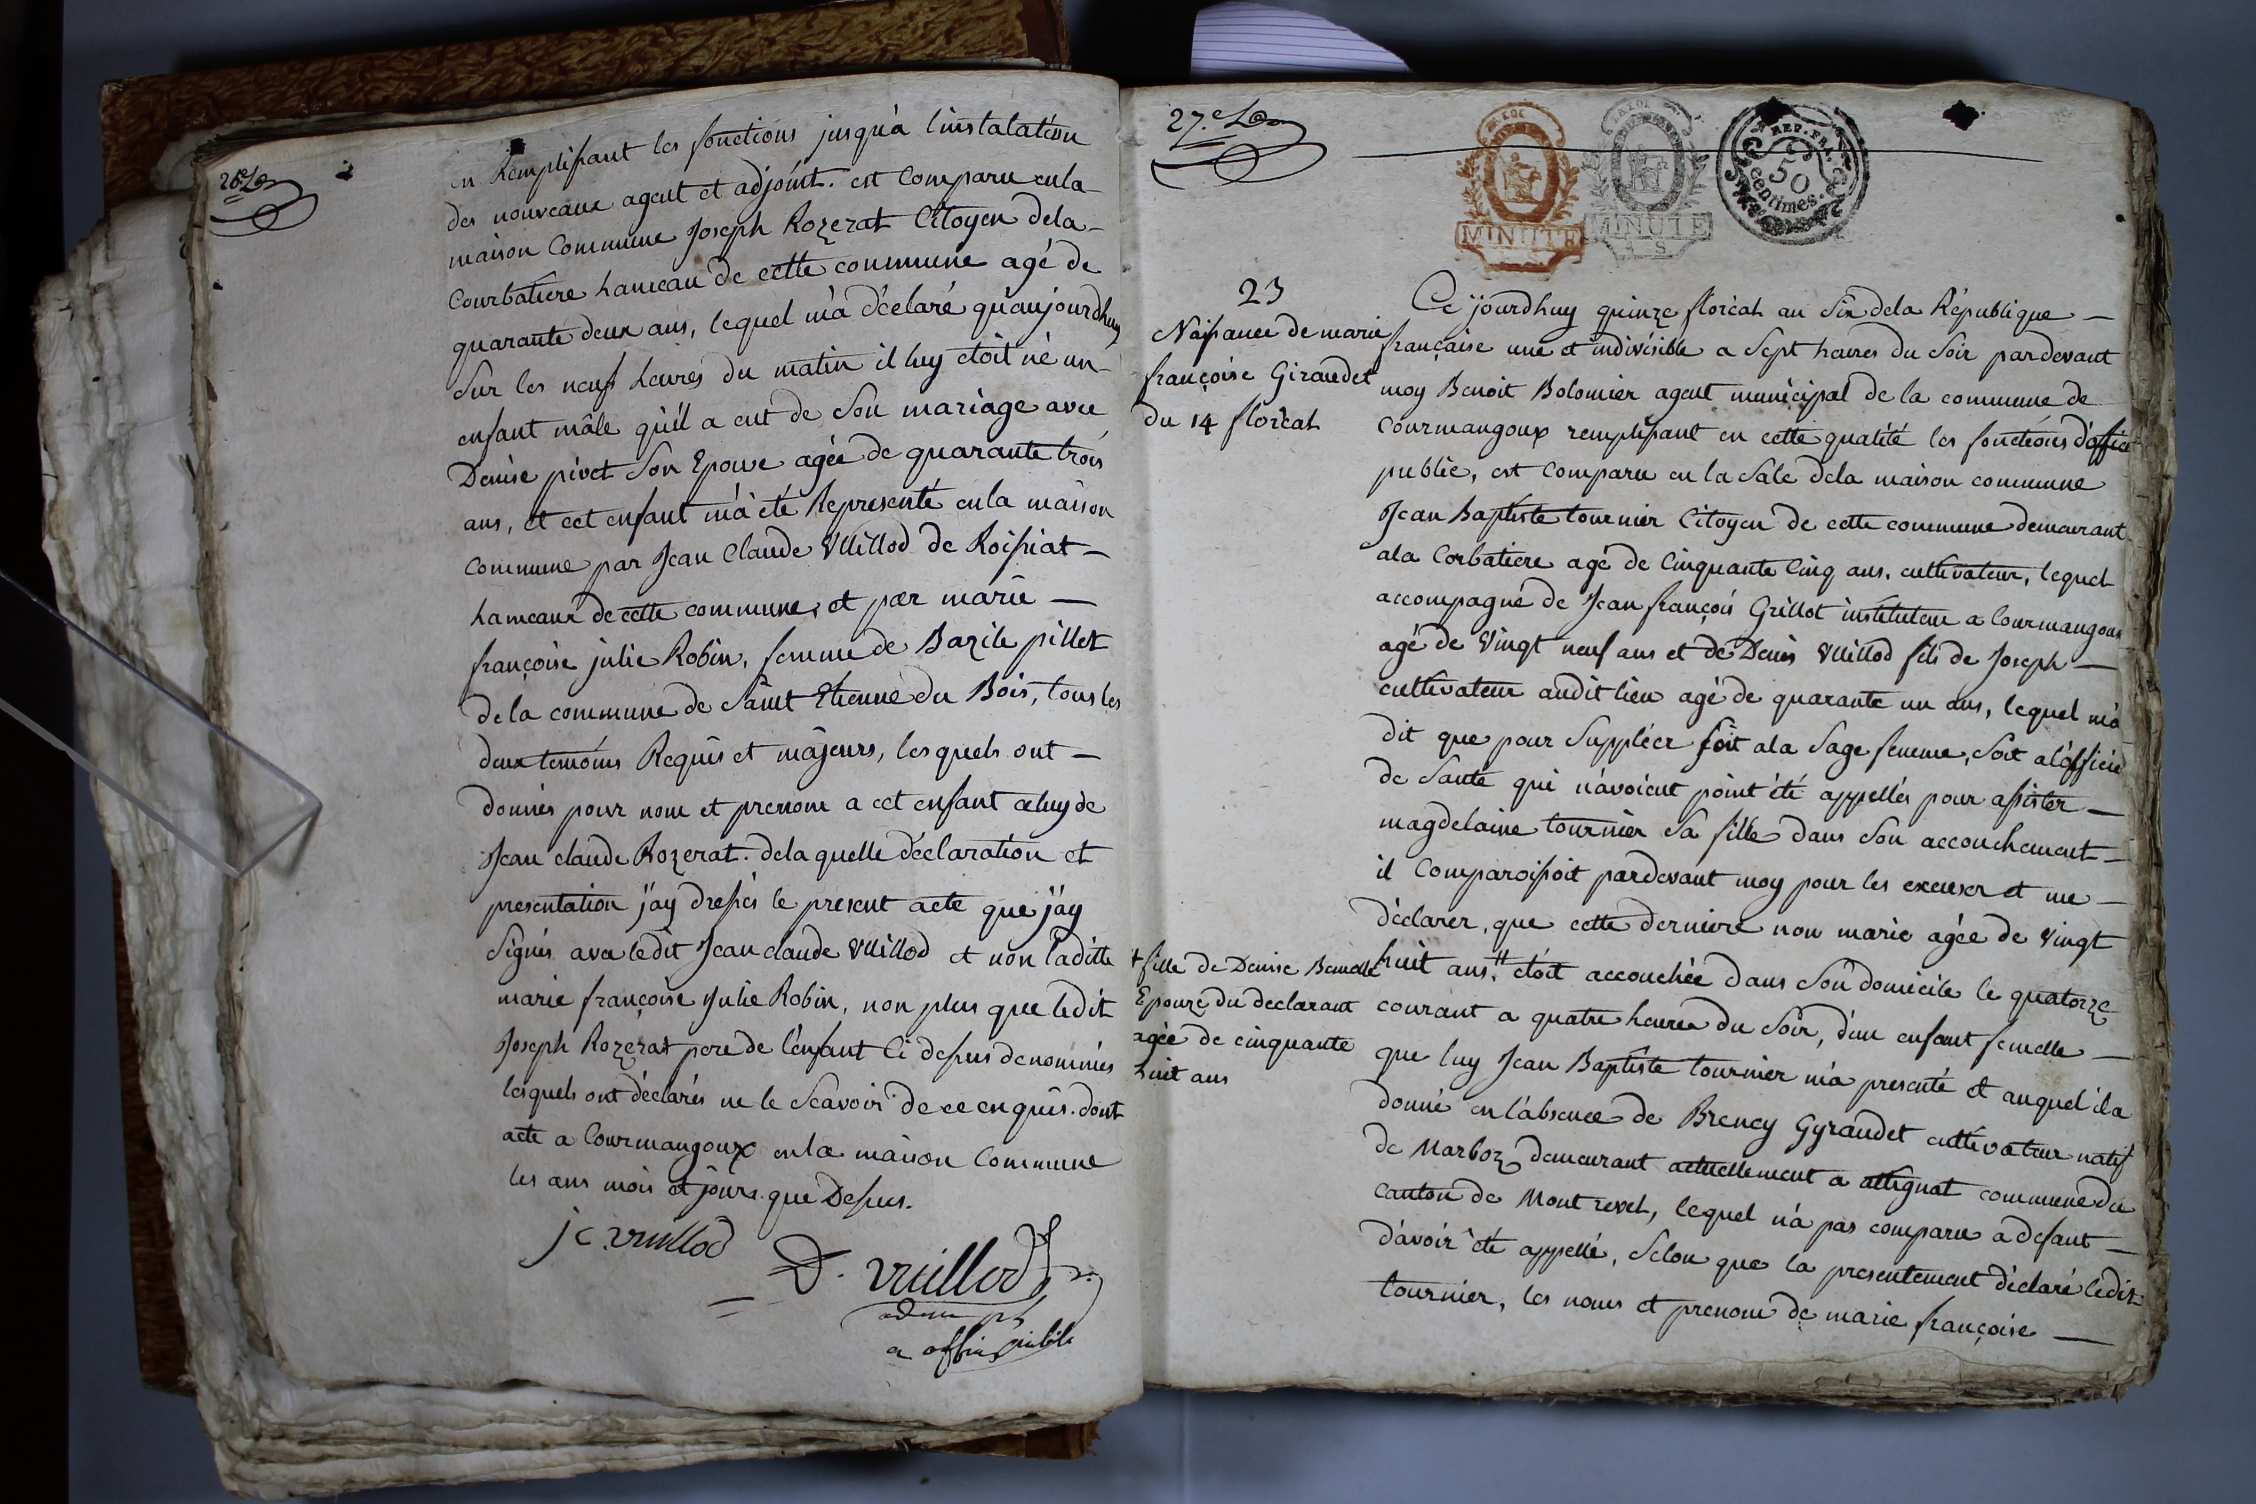 26.e
en Remplissant les fonctions jusqu'à linstalation
des nouveaux agent et adjoint. est Comparu en la
maison Commune Joseph Rozerat Citoyen de la
Courbatiere hameau de cette commune agé de
quarante deux ans, lequel m'a déclaré qu'aujourdhuy
Sur les neuf heures du matin il luy etoit né un
enfant mâle qu'il a eut de Son mariage avec
Denise pivet Son Epouse agée de quarante trois
ans, et cet enfant m'à été Representé en la maison
Commune par Jean Claude Vuillod de Roissiat
hameaux de cette commune, et par marie
françoise julie Robin, femme de Bazile pillet
de la commune de Saint Etienne du Bois, tous les
deux temoins Requis et majeurs, lesquels ont
donnés pour nom et prenom a cet enfant celuy de
Jean claude Rozerat. de la quelle déclaration et
presentation j'ay dressés le present acte que j'ay
Signés avec ledit Jean claude Vuillod et non laditte
marie françoise Julie Robin, non plus que ledit
Joseph Rozerat pere de l'enfant Ci dessus denommés
lesquels ont déclarés ne le Scavoir de ce enquis. dont
acte a Courmangoux en la maison Commune
les ans mois et jours que Dessus.
j c vuillod
D. vuillod
a offier public
27.e
MINUTE
MINUTE
REP. FRA.
50
centimes.
23
Naissance de marie
françoise Giraudet
du 14 floréal
Ce jourdhuy quinze floréal an Six de la République
française une et indivisible a Sept heures du Soir pardevant
moy Benoit Bolomier agent municipal de la commune de
Courmangoux remplissant en cette qualité les fonctions d'officier
public, est Comparu en la Sale de la maison commune
Jean Baptiste tournier Citoyen de cette commune demeurant
a la Corbatiere agé de Cinquante Cinq ans, cultivateur, lequel
accompagné de Jean françois Grillot instituteur a Courmangoux
agé de Vingt neuf ans et de Denis Vuillod fils de Joseph
cultivateur audit lieu agé de quarante un ans, lequel m'a
dit que pour Suppléer Soit a la Sage femme, Soit a l'officier
de Santé qui n'avoient point été appellés pour assister
magdelaine tournier Sa fille dans Son accouchement
il Comparoissoit pardevant moy pour les excuser et me
déclarer, que cette derniere non marie agée de Vingt
huit ans, # étoit accouchée dans Son domicile le quatorze
courant a quatre heures du Soir, d'un enfant femelle
que luy Jean Baptiste tournier m'a presenté et auquel il a
donné en l'absence de Brency Gyraudet cultivateur natif
de Marboz demeurant actuellement a attignat commune du
Canton de Mont revel, lequel n'a pas comparu a defaut
d'avoir été appellé, Selon que la presentement déclaré ledit
tournier, les noms et prenom de marie françoise
+ fille de Denise
Epouze du declarant
agée de cinquante
huit ans